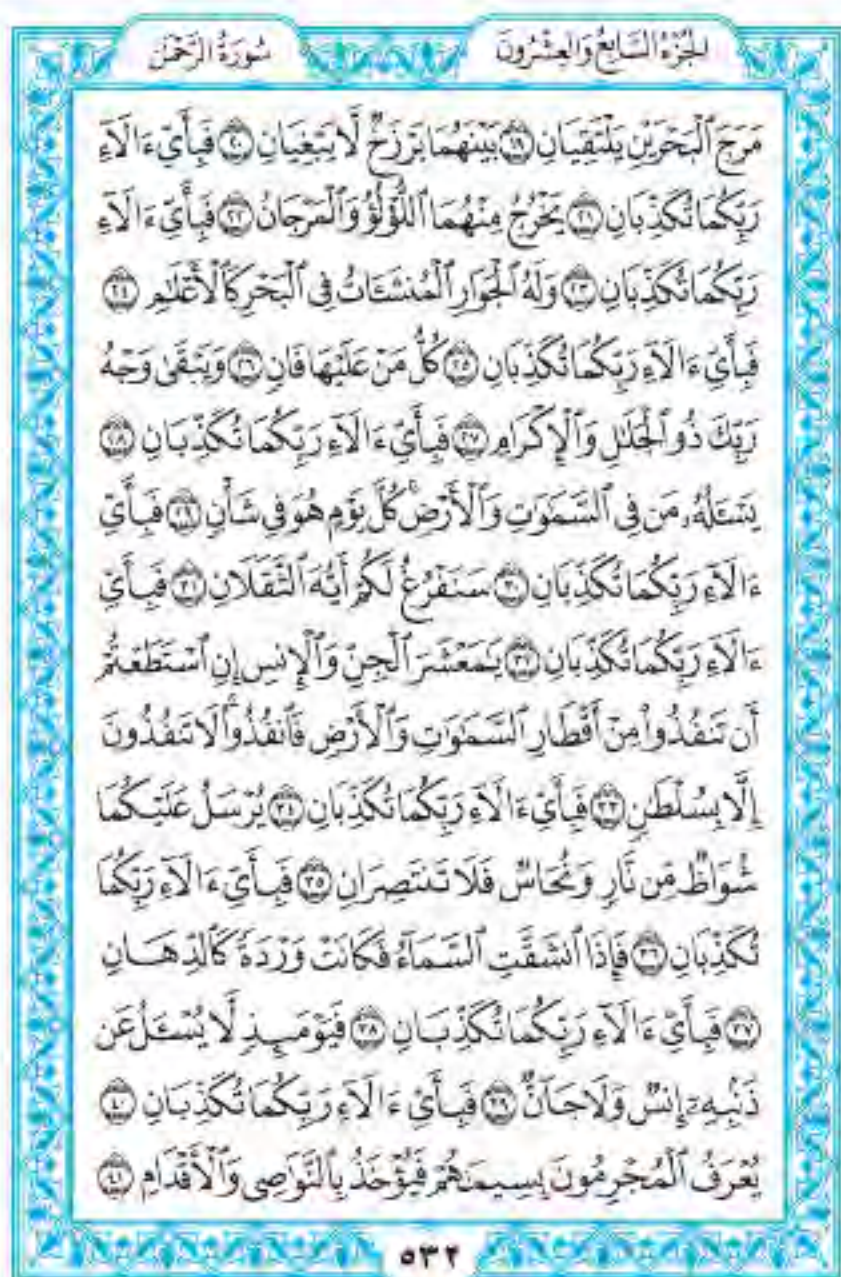 الجُزْءُ السَّابِعُ وَالعِشْرُونَ سُورَةُ الرَّحْمٰن
مَرَجَ ٱلْبَحْرَيْنِ يَلْتَقِيَانِ ۝١٩ بَيْنَهُمَا بَرْزَخٌ لَّا يَبْغِيَانِ ۝٢٠ فَبِأَيِّ ءَالَآءِ
رَبِّكُمَا تُكَذِّبَانِ ۝٢١ يَخْرُجُ مِنْهُمَا ٱللُّؤْلُؤُ وَٱلْمَرْجَانُ ۝٢٢ فَبِأَيِّ ءَالَآءِ
رَبِّكُمَا تُكَذِّبَانِ ۝٢٣ وَلَهُ ٱلْجَوَارِ ٱلْمُنشَـَٔاتُ فِى ٱلْبَحْرِ كَٱلْأَعْلَٰمِ ۝٢٤
فَبِأَيِّ ءَالَآءِ رَبِّكُمَا تُكَذِّبَانِ ۝٢٥ كُلُّ مَنْ عَلَيْهَا فَانٍ ۝٢٦ وَيَبْقَىٰ وَجْهُ
رَبِّكَ ذُو ٱلْجَلَٰلِ وَٱلْإِكْرَامِ ۝٢٧ فَبِأَيِّ ءَالَآءِ رَبِّكُمَا تُكَذِّبَانِ ۝٢٨
يَسْـَٔلُهُۥ مَن فِى ٱلسَّمَٰوَٰتِ وَٱلْأَرْضِ ۚ كُلَّ يَوْمٍ هُوَ فِى شَأْنٍ ۝٢٩ فَبِأَيِّ
ءَالَآءِ رَبِّكُمَا تُكَذِّبَانِ ۝٣٠ سَنَفْرُغُ لَكُمْ أَيُّهَ ٱلثَّقَلَانِ ۝٣١ فَبِأَيِّ
ءَالَآءِ رَبِّكُمَا تُكَذِّبَانِ ۝٣٢ يَٰمَعْشَرَ ٱلْجِنِّ وَٱلْإِنسِ إِنِ ٱسْتَطَعْتُمْ
أَن تَنفُذُوا۟ مِنْ أَقْطَارِ ٱلسَّمَٰوَٰتِ وَٱلْأَرْضِ فَٱنفُذُوا۟ ۚ لَا تَنفُذُونَ
إِلَّا بِسُلْطَٰنٍ ۝٣٣ فَبِأَيِّ ءَالَآءِ رَبِّكُمَا تُكَذِّبَانِ ۝٣٤ يُرْسَلُ عَلَيْكُمَا
شُوَاظٌ مِّن نَّارٍ وَنُحَاسٌ فَلَا تَنتَصِرَانِ ۝٣٥ فَبِأَيِّ ءَالَآءِ رَبِّكُمَا
تُكَذِّبَانِ ۝٣٦ فَإِذَا ٱنشَقَّتِ ٱلسَّمَآءُ فَكَانَتْ وَرْدَةً كَٱلدِّهَانِ
۝٣٧ فَبِأَيِّ ءَالَآءِ رَبِّكُمَا تُكَذِّبَانِ ۝٣٨ فَيَوْمَئِذٍ لَّا يُسْـَٔلُ عَن
ذَنۢبِهِۦٓ إِنسٌ وَلَا جَآنٌّ ۝٣٩ فَبِأَيِّ ءَالَآءِ رَبِّكُمَا تُكَذِّبَانِ ۝٤٠
يُعْرَفُ ٱلْمُجْرِمُونَ بِسِيمَٰهُمْ فَيُؤْخَذُ بِٱلنَّوَٰصِى وَٱلْأَقْدَامِ ۝٤١
٥٣٢